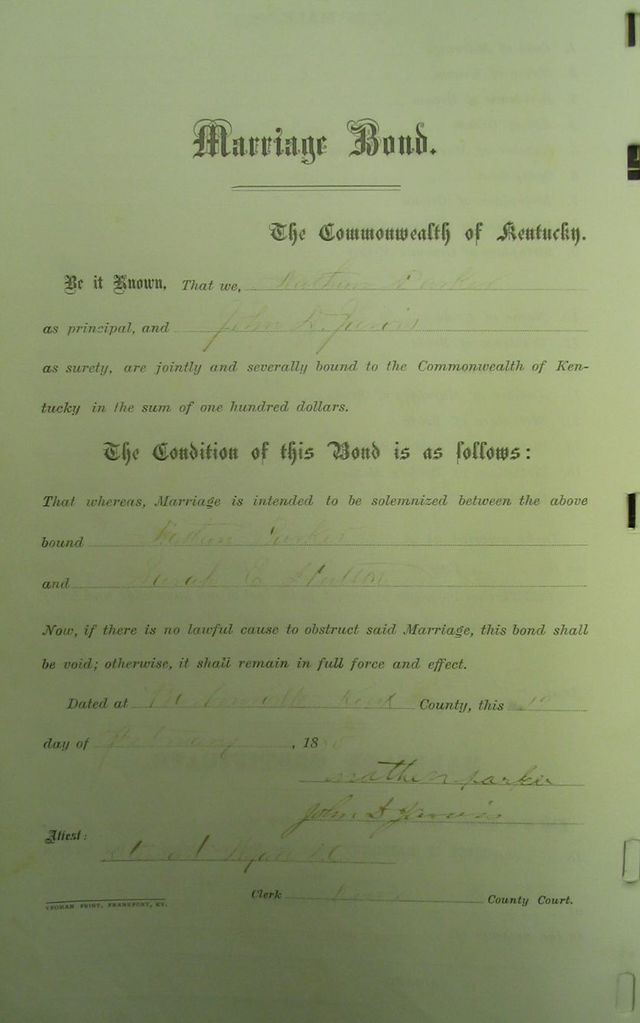 Marriage Bond.
The Commonwealth of Kentucky.
Be it Known, That we, Parker
as principal, and John D. Jarvis
as surety, are jointly and severally bound to the Commonwealth of Ken-
tucky in the sum of one hundred dollars.
The Condition of this Bond is as follows:
That whereas, Marriage is intended to be solemnized between the above
bound Parker
and Sarah C
Now, if there is no lawful cause to obstruct said Marriage, this bond shall
be void; otherwise, it shall remain in full force and effect.
Dated at Barbourville Knox County, this 19
day of February , 188
mathen parker
John D Jarvis
Attest:
Clerk Knox County Court.
YEOMAN PRINT, FRANKFORT, KY.